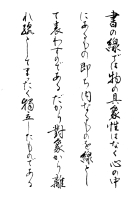 書の線には物の具象性はなく心の中
にあるもの即ち内なるものを線とし
て表わすのであるだから対象から離
れ線としてまったく独立したものである